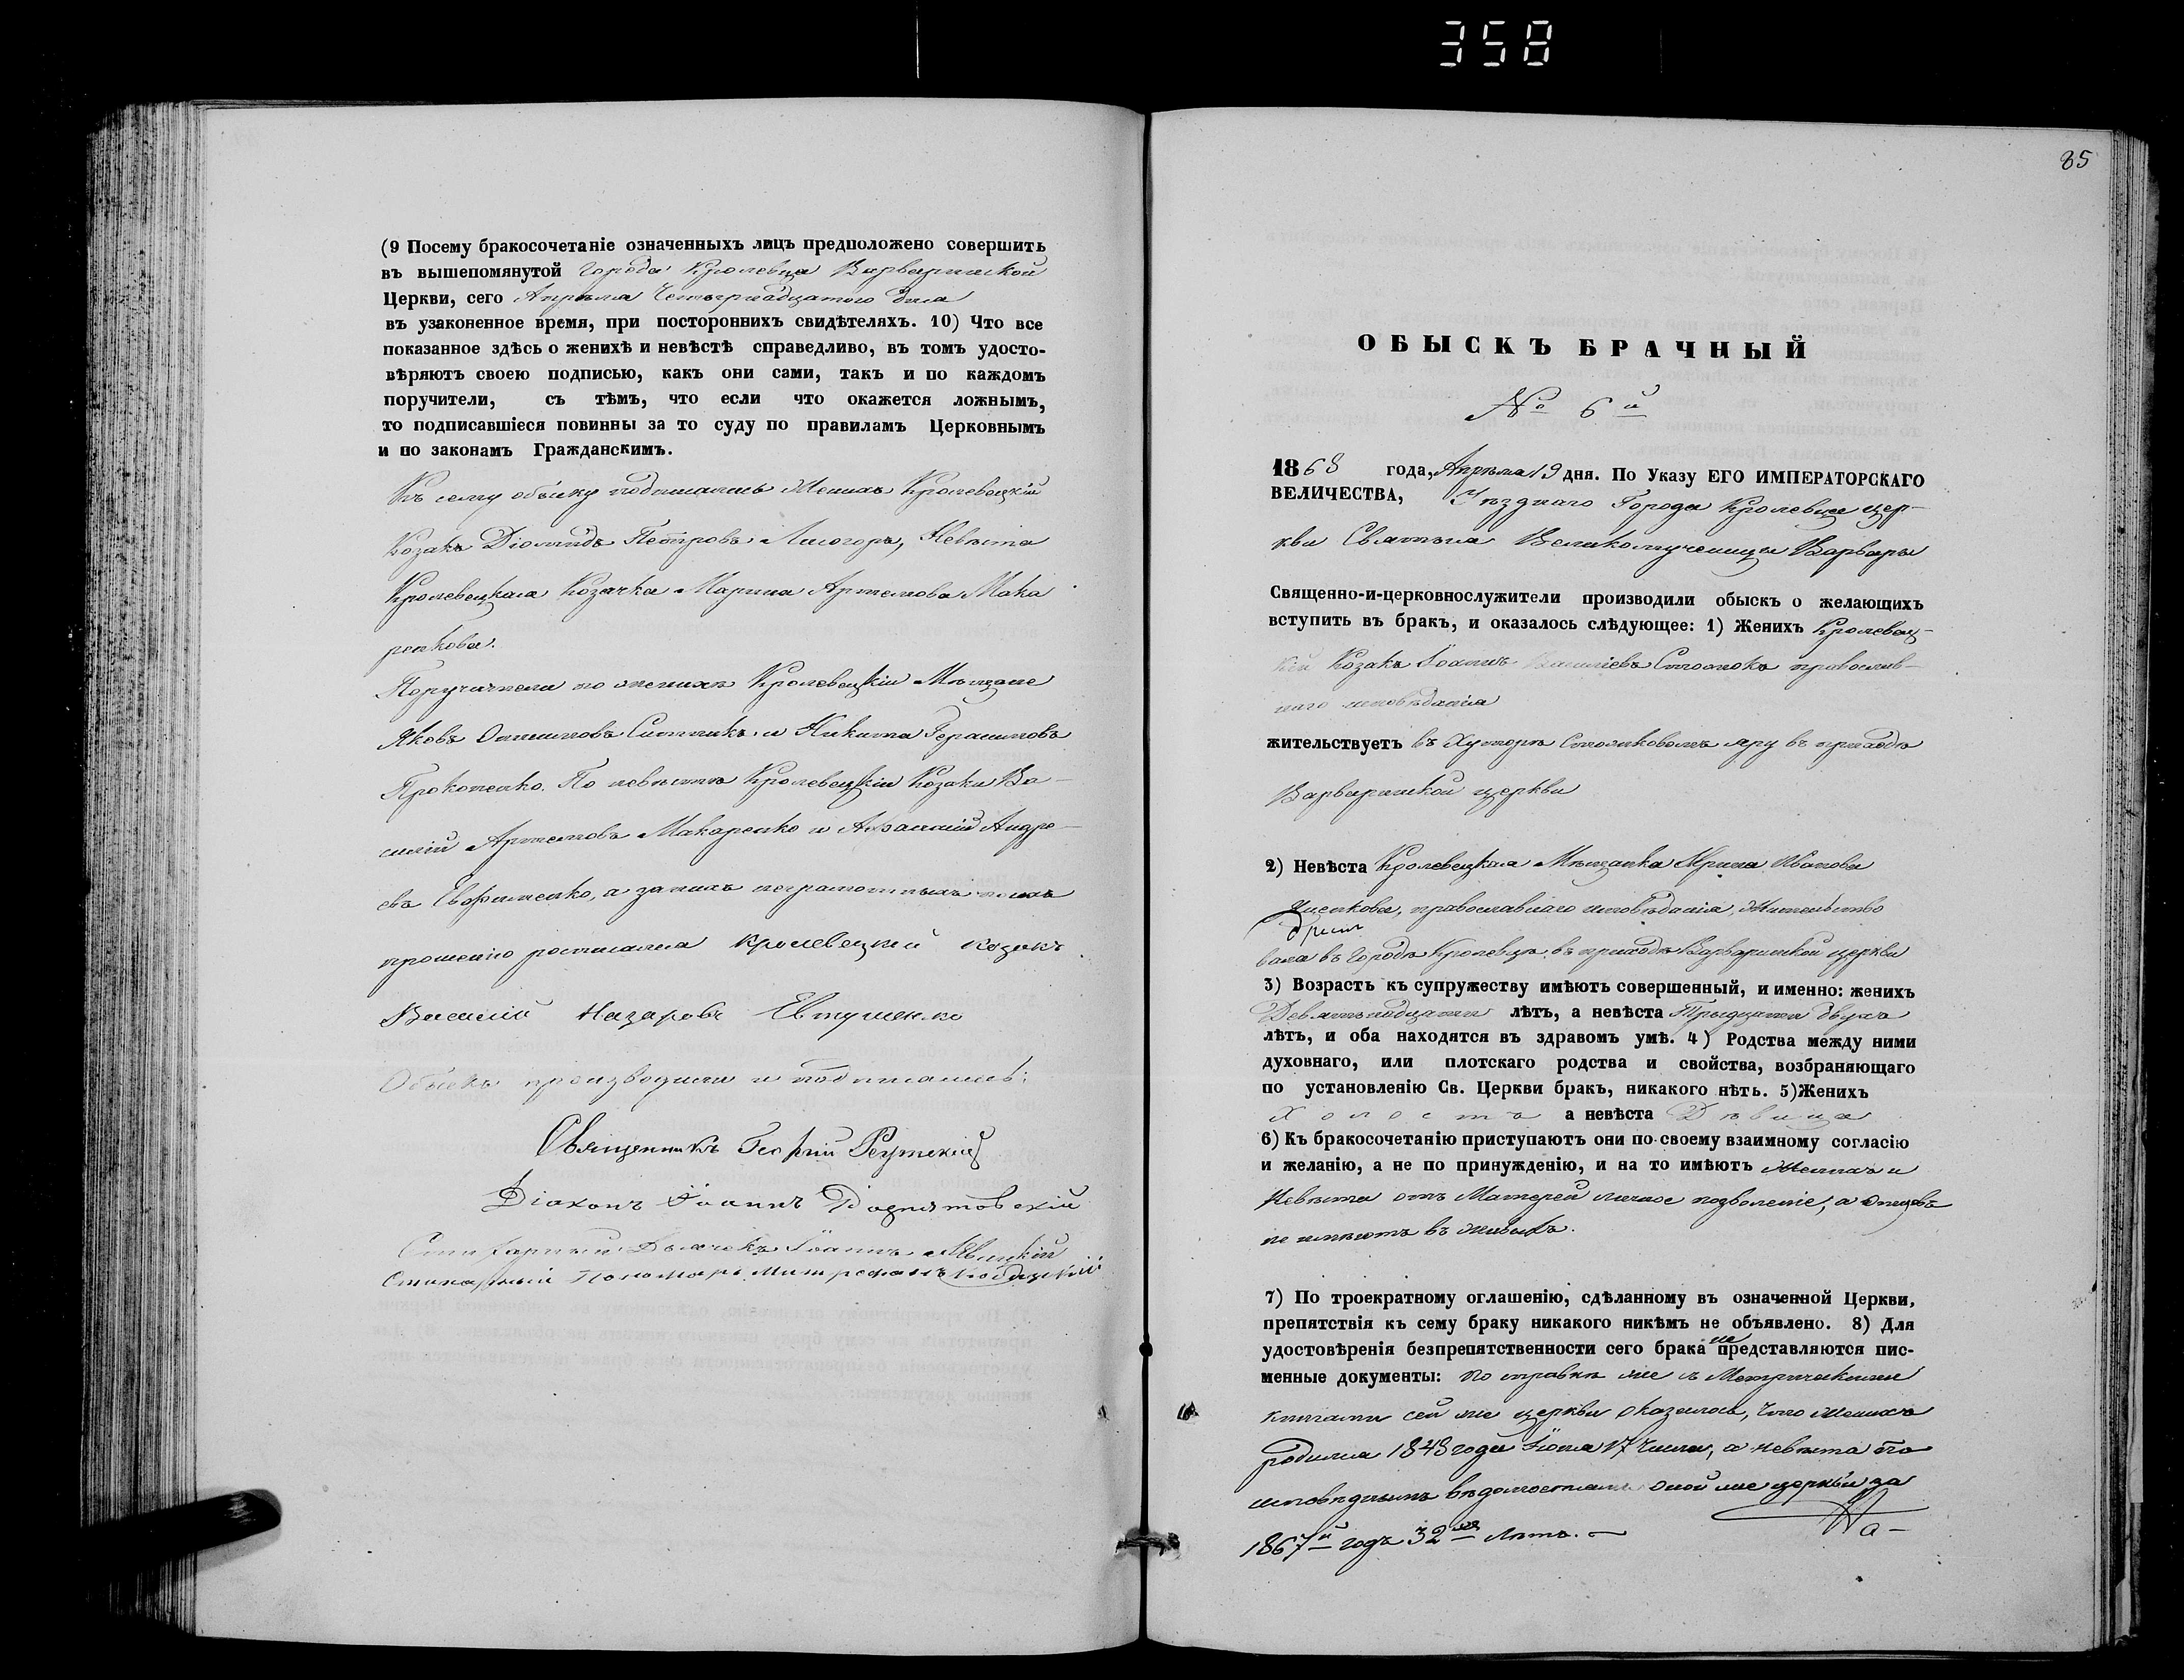 358
(9 Посему бракосочетаніе означенныхъ лицъ предположено совершить
въ вышепомянутой города Кролевца Варваринской
Церкви, сего Апрѣля Четырнадцатого дня
въ узаконенное время, при постороннихъ свидѣтеляхъ. 10) Что все
показанное здѣсь о женихѣ и невѣстѣ справедливо, въ томъ удосто-
вѣряютъ своею подписью, какъ они сами, такъ и по каждомъ
поручители, съ тѣмъ, что если что окажется ложнымъ,
то подписавшіеся повинны за то суду по правиламъ Церковнымъ
и по законамъ Гражданскимъ.
Къ сему обыску подписались Женихъ Кролевецкій
Козакъ Діомидъ Петровъ Лисогоръ, Невѣста
Кролевецкая Козачка Марина Артемова Мака
ренкова.
Поручители по женихѣ Кролевецкіи Мѣщане
Яковъ Ситникъ и Никита Герасимовъ
Прокопенко. По невѣстѣ Кролевецкіи Козаки Ва-
силій Артемовъ Макаренко и Аѳанасій Андре-
евъ Евфименко, а за нихъ неграмотныхъ по ихъ
прошенію росписался Кролевецкій козакъ
Василій Назаровъ Евтушенко
Обыскъ производили и подписались:
Священникъ Георгій Реутскій
Діаконъ Іоаннъ
Стихарный Дьячокъ Іоаннъ Левицкій
Стихарный Пономарь Митрофанъ
85
ОБЫСКЪ БРАЧНЫЙ
№ 6й
1868 года, Апрѣля 19 дня. По Указу ЕГО ИМПЕРАТОРСКАГО
ВЕЛИЧЕСТВА, Уѣзднаго Города Кролевца цер-
кви Святыя Великомученицы Варвары
Священно-и-церковнослужители производили обыскъ о желающихъ
вступить въ бракъ, и оказалось слѣдующее: 1) Женихъ Кролевец-
кій Козакъ Іоаннъ Василіевъ православ-
наго исповѣданія
жительствуетъ въ Хуторѣ яру въ приходѣ
Варваринской церкви
2) Невѣста Кролевецкая Мѣщанка Ирина Иванова
православнаго исповѣданія, Жительство
вала въ городѣ Кролевцѣ въ приходѣ Варваринской церкви
3) Возрастъ къ супружеству имѣютъ совершенный, и именно: женихъ
Девятнадцати лѣтъ, а невѣста Тридцати двухъ
лѣтъ, и оба находятся въ здравомъ умѣ. 4) Родства между ними
духовнаго, или плотскаго родства и свойства, возбраняющаго
по установленію Св. Церкви бракъ, никакого нѣтъ. 5)Женихъ
Холостъ а невѣста Дѣвица
6) Къ бракосочетанію приступаютъ они по своему взаимному согласію
и желанію, а не по принужденію, и на то имѣютъ Женихъ и
Невѣста отъ Матерей личное позволеніе, а отцевъ
не имѣютъ въ живыхъ.
7) По троекратному оглашенію, сдѣланному въ означенной Церкви,
препятствія къ сему браку никакого никѣмъ не объявлено. 8) Для
удостовѣренія безпрепятственности сего брака не представляются пис-
менные документы: по справкѣ же с Метрическими
книгами сей же церкви оказалось, что женихъ
родился 1848 года Іюня 17 числа, а невѣста по
исповѣднымъ вѣдомостямъ оной же церкви за
1867й годъ 32 лѣтъ. — На-